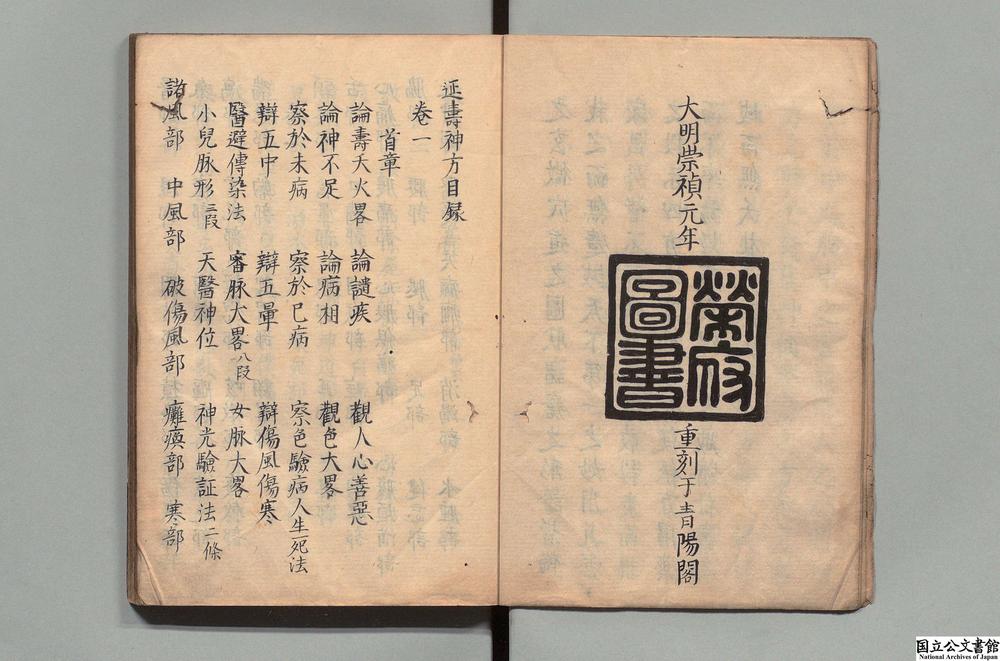 大明崇禎元年
榮府圖書
重刻于青陽閣
延壽神方目錄
卷一
首章
論壽夭火畧 論譴疾 觀人心善惡
論神不足 論病相 觀色大畧
察於未病 察於已病 察色驗病人生死法
辯五中 辯五暈 辯傷風傷寒
醫避傳染法 審脉大畧八段 女脉大畧
小兒脉形二段 天醫神位 神光驗証法二條
諸風部 中風部 破傷風部 癱瘓部 寒部
国立公文書館
National Archives of Japan